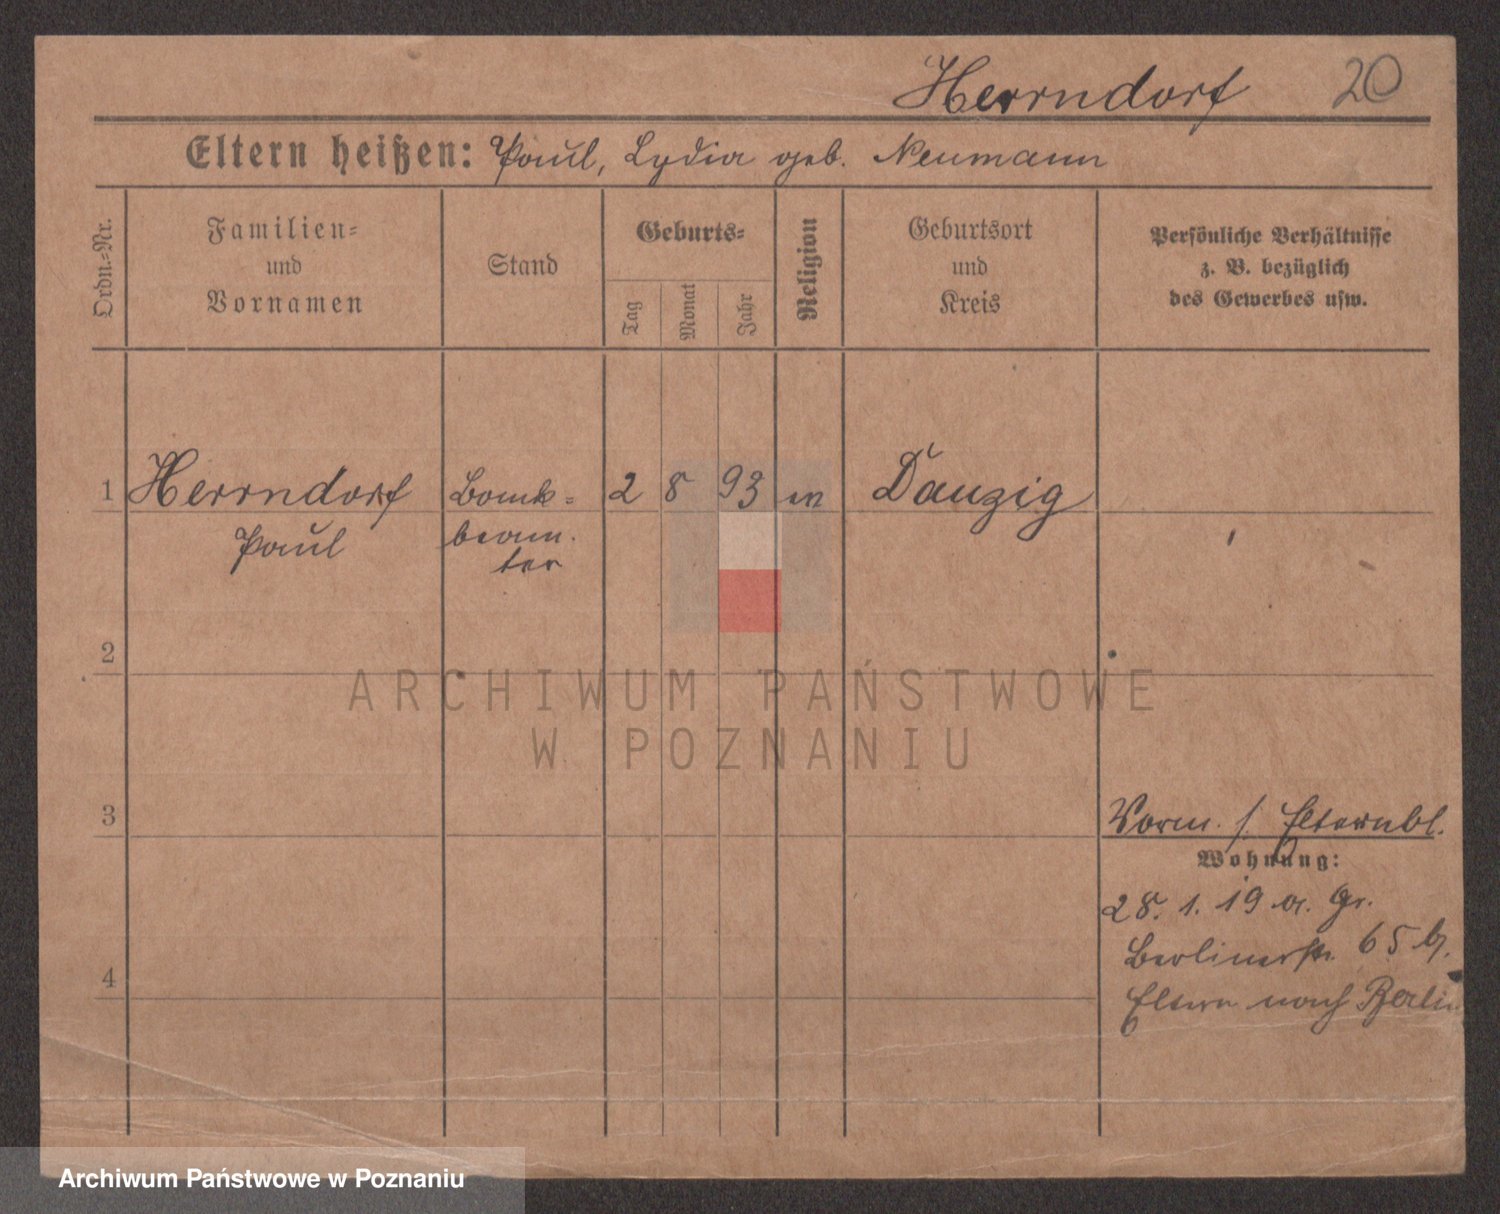 Herrndorf 20
Eltern heißen: Paul, Lydia geb. Neumann
Ordn.-Nr.
Familien-
und
Vornamen
Stand
Geburts-
Tag
Monat
Jahr
Religion
Geburtsort
und
Kreis
Persönliche Verhältnisse
z. B. bezüglich
des Gewerbes usw.
1 Herrndorf Bank- 2 8 93 Danzig
Paul beam-
ter
2
ARCHIWUM PAŃSTWOWE
W POZNANIU
3
Vorm. s. Elternbl.
Wohnung:
28. 1. 19 a. Gr.
Berlinerstr. 65 b.
4
Eltern nach Berlin
Archiwum Państwowe w Poznaniu